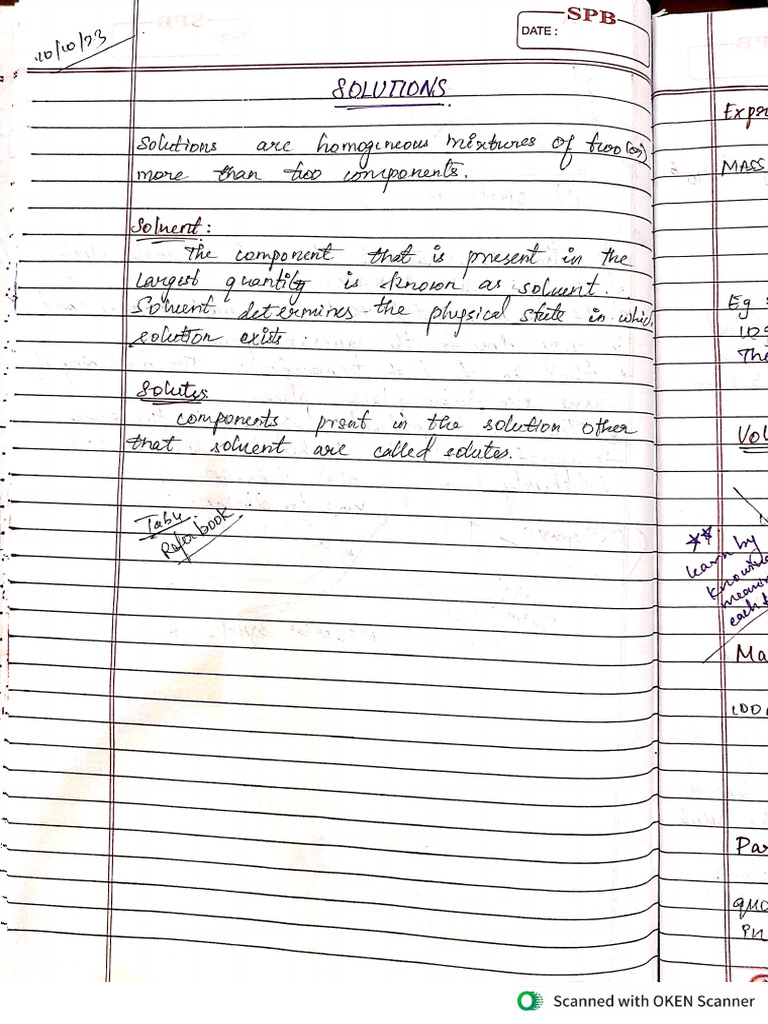 10/10/23
SPB
DATE :
SOLUTIONS
Solutions are homogineous mixtures of two (or)
more than two components.
Solvent:
The component that is present in the
largest quantity is known as solvent.
Solvent determines the physical state in which
solution exists
Solutes:
components prsnt in the solution other
that solvent are called solutes.
Table
Refer book
MASS
Eg
The
learn by
each
Ma
Par
Scanned with OKEN Scanner